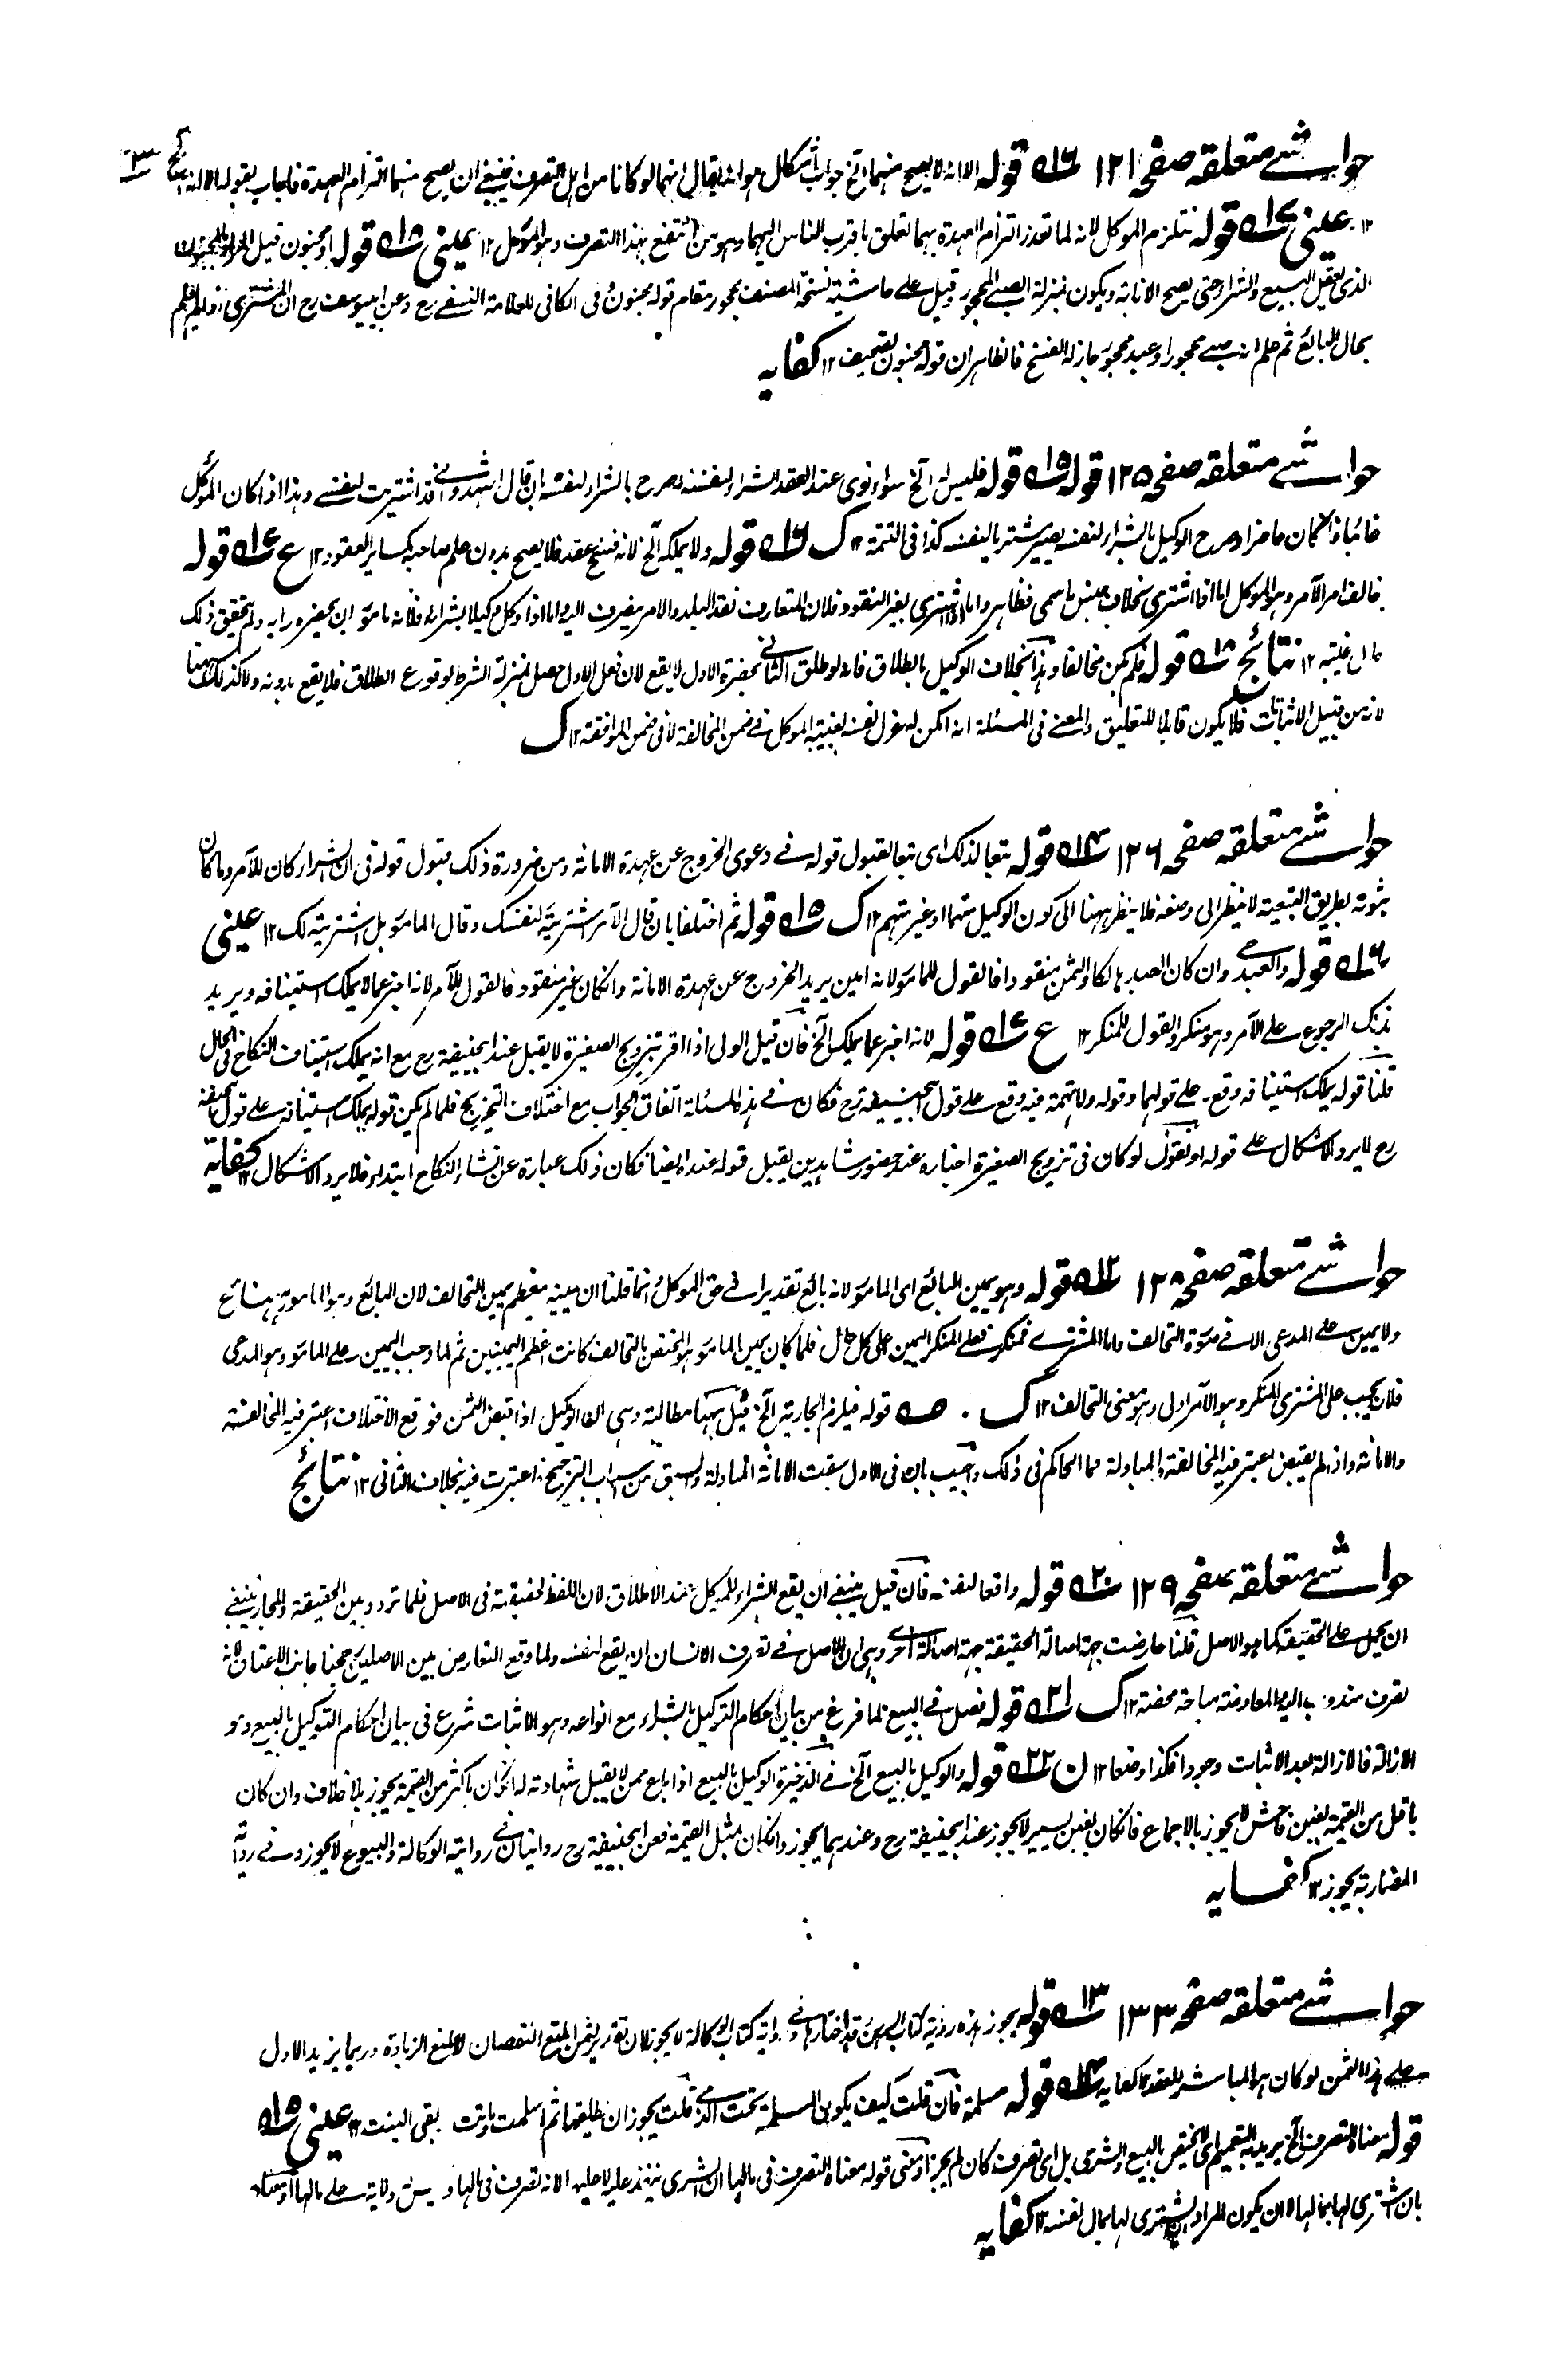 حواشے متعلقه صفحه ١٢١ ١٦ قوله الا انه لا يصح منهما الخ جواب اشكال هو ان يقال انهما لو كانا من اهل التصرف فينبغى ان يصح منهما التزام العهدة فاجاب بقوله الا انه الخ
١٢ عينى ١٧ قوله فتلزم الموكل لانه لما تعذر التزام العهدة بهما تعلق باقرب الناس اليهما وهو من انتفع بهذا التصرف وهو الموكل ١٢ عينى ١٨ قوله او مجنون قيل المراد المجنون
الذى يعقل البيع والشراء حتى يصح الانابة ويكون بمنزلة الصبى المحجور وقيل على حاشية نسخة المصنف محجور مقام قوله مجنون وفى الكافى للعلامة النسفى رح وعن ابى يوسف رح ان المشترى اذا لم يعلم
بحال البائع ثم علم انه صبى محجور او عبد محجور جاز له الفسخ فالظاهر ان قوله مجنون تصحيف ١٢ كفايه
حواشے متعلقه صفحه ١٢٥ قوله ١٥ قوله فليس له الخ سواء نوى عند العقد الشراء لنفسه او صرح بالشراء لنفسه بان قال اشهدوا انى قد اشتريت لنفسى وهذا اذا كان الموكل
غائبا فان كان حاضرا وصرح الوكيل بالشراء لنفسه يصير مشتريا لنفسه كذا فى التتمة ١٢ ك ١٦ قوله ولا يملكه الخ لانه فسخ عقد فلا يصح بدون علم صاحبه كسائر العقود ١٢ ع ١٧ قوله
خالف امر الآمر وهو الموكل اما اذا اشترى بخلاف جنس ما سمى فظاهر واما اذا اشترى بغير النقود فلان المتعارف نقد البلد والامر ينصرف اليه اما اذا وكل وكيلا بشرائه فلانه مامور ان يحضره رايه ولم يتحقق ذلك
حال غيبته ١٢ نتائج ١٨ قوله فلم يكن مخالفا وهذا بخلاف الوكيل بالطلاق فانه لو طلق الثانى بحضرة الاول لا يقع لان فعل الاول جعل بمنزلة الشرط لوقوع الطلاق فلا يقع بدونه ولا كذلك ههنا
لانه من قبيل الاثباتات فلا يكون قابلا للتعليق والمعنى فى المسئلة انه امكن له عزل نفسه بغيبة الموكل فى ضمن المخالفة لا فى ضمن الموافقة ١٢ ك
حواشے متعلقه صفحه ١٢٦ ١٤ قوله تبعا لذلك اى تبعا لقبول قوله فى دعوى الخروج عن عهدة الامانة ومن ضرورة ذلك قبول قوله فى ان الشراء كان للآمر وما كان
ثبوته بطريق التبعية لا ينظر الى وصفه فلا ينظر ههنا الى كون الوكيل متهما او غير متهم ١٢ ك ١٥ قوله ثم اختلفا بان قال الآمر اشتريته لنفسك وقال المامور بل اشتريته لك ١٢ عينى
١٦ قوله والعبد حى وان كان العبد هالكا والثمن منقودا فالقول للمامور لانه امين يريد الخروج عن عهدة الامانة وان كان غير منقود فالقول للآمر لانه اخبر عما لا يملك استينافه ويريد
بذلك الرجوع على الآمر وهو منكر والقول للمنكر ١٢ ع ١٧ قوله لانه اخبر عما يملك الخ فان قيل الولى اذا اقر بتزويج الصغيرة لا يقبل عند ابى حنيفة رح مع انه يملك استيناف النكاح فى الحال
قلنا قوله يملك استينافه وقع على قولهما وقوله ولا تهمة فيه وقع على قول ابى حنيفة رح فكان فى هذه المسئلة اتفاق الجواب مع اختلاف التخريج فلما لم يكن قوله يملك استينافه على قول ابى حنيفة
رح لا يرد الاشكال على قوله او نقول لو كان فى تزويج الصغيرة اخباره عند حضور شاهدين يقبل قوله عنده ايضا فكان ذلك عبارة عن انشاء النكاح ابتداء فلا يرد الاشكال ١٢ كفاية
حواشے متعلقه صفحه ١٢٨ ١٢ قوله وهو يمين البائع اى المامور لانه بائع تقديرا فى حق الموكل انما قلنا ان يمينه معظم يمين التحالف لان البائع وهو المامور ههنا مدع
ولا يمين على المدعى الا فى صورة التحالف واما المشترى فمنكر فعلى المنكر اليمين على كل حال فلما كان يمين المامور هو المختص بالتحالف كانت اعظم اليمينين ثم لما وجب اليمين على المامور وهو المدعى
فلان يجب على المشترى المنكر وهو الآمر اولى وهو معنى التحالف ١٢ ك قوله فيلزم الجارية الخ قيل ههنا مطالبة وهى ان الوكيل اذا قبض الثمن فوقع الاختلاف اعتبر فيه المخالفة
والامانة واذا لم يقبض يعتبر فيه المخالفة والمبادلة فما الحاكم فى ذلك واجيب بان فى الاول سبقت الامانة المبادلة والسبق من اسباب الترجيح فاعتبرت فيه بخلاف الثانى ١٢ نتائج
حواشے متعلقه صفحه ١٢٩ ٢٠ قوله واقعا لنفسه فان قيل ينبغى ان يقع الشراء للموكل عند الاطلاق لان اللفظ لحقيقته فى الاصل فلما تردد بين الحقيقة والمجاز ينبغى
ان يحمل على الحقيقة كما هو الاصل قلنا عارضت جهة اصالة الحقيقة جهة اصالة اخرى وهى ان الاصل فى تصرف الانسان ان يقع لنفسه ولما وقع التعارض بين الاصلين رجحنا جانب الاعتاق لانه
تصرف مندوب اليه والمعاوضة مباحة محضة ١٢ ك ٢١ قوله فصل فى البيع لما فرغ من بيان احكام التوكيل بالشراء مع انواعه وهو الاثبات شرع فى بيان احكام التوكيل بالبيع وهو
الازالة فالازالة بعد الاثبات وجودا فكذا وضعا ١٢ ن ٢٢ قوله والوكيل بالبيع الخ فى الذخيرة الوكيل بالبيع اذا باع ممن لا يقبل شهادته له ان كان باكثر من القيمة يجوز بلا خلاف وان كان
باقل من القيمة بغبن فاحش لا يجوز بالاجماع فان كان بغبن يسير لا يجوز عند ابى حنيفة رح وعندهما يجوز وان كان بمثل القيمة فعن ابى حنيفة رح روايتان فى رواية الوكالة والبيوع لا يجوز وفى رواية
المضاربة يجوز ١٢ كفايه
حواشے متعلقه صفحه ١٣٣ ١٣ قوله يجوز هذه رواية كتاب الرهن قد اختارها وفى رواية كتاب الوكالة لا يجوز لان تقدير الثمن لمنع النقصان لا لمنع الزيادة وربما يزيد الاول
على هذا الثمن لو كان هو المباشر للعقد ١٢ كفايه ١٤ قوله مسلمة فان قلت كيف يكون المسلمة تحت الذمى قلت يجوز ان طلقها ثم اسلمت وماتت بقى البنت ١٢ عينى ١٥
قوله معناه التصرف الخ يريد به التعميم اى لا يختص بالبيع والشرى بل اى تصرف كان لم يجز او معنى قوله معناه التصرف فى مالها ان الشرى ينفذ عليه لا عليها الا انه تصرف فى مالها وليس له ولاية على مالها او معناه
بان اشترى لها بمالها لا ان يكون المراد ان يشترى لها بمال نفسه ١٢ كفايه